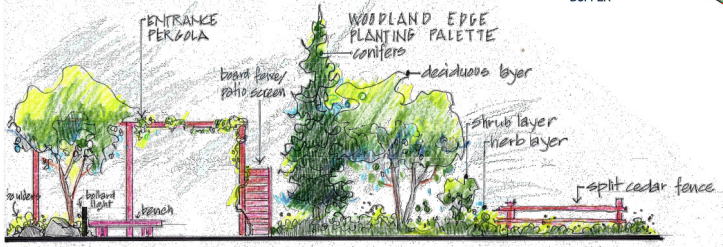 ENTRANCE
PERGOLA
WOODLAND EDGE
PLANTING PALETTE
conifers
deciduous layer
patio screen
shrub layer
herb layer
split cedar fence
boulders
bollard
light
bench